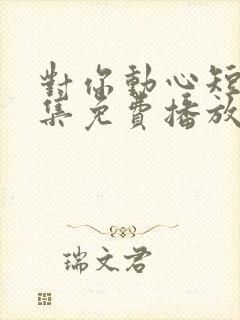 對你動心短
集免費播放
瑞文君